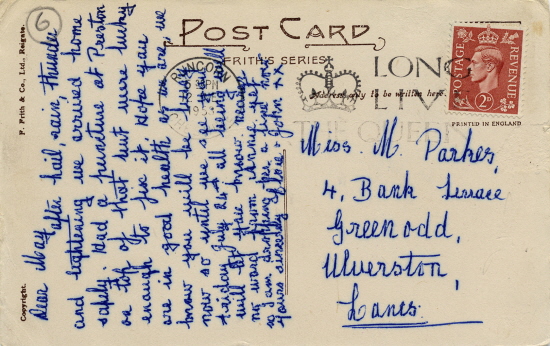 6
POST CARD
FRITH'S SERIES
Address only to be written here.
RUNCORN
LONG
LIVE
THE QUEEN
POSTAGE
REVENUE
2D
PRINTED IN ENGLAND
Copyright.
F. Frith & Co., Ltd., Reigate.
Dear May,
after hail, rain, thunder
and lightening we arrived home
safely. Had a puncture at Preston
on top of that but were lucky
enough to fix it. Hope you
are in good health as we are, we
know you will be busy
now so until we see you all
Friday July 24th all being well
will let you know
no word from
so I am dropping her a line
Yours sincerely Flore & John xx
Miss M. Parkes,
4, Bank Terrace
Greenodd,
Ulverston,
Lancs.